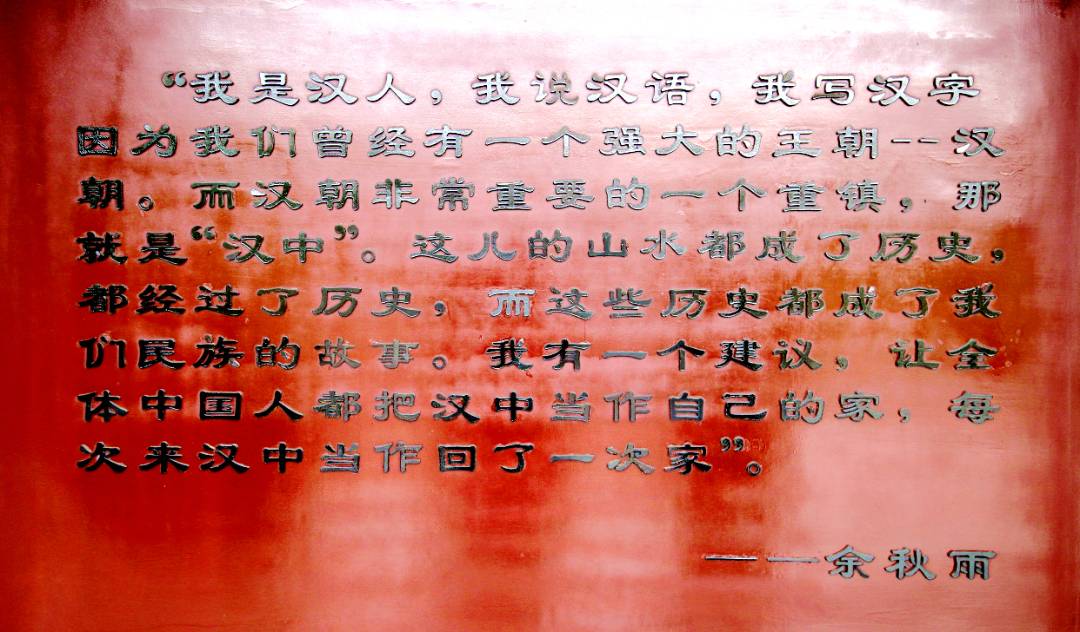 “我是汉人，我说汉语，我写汉字
因为我们曾经有一个强大的王朝--汉
朝。而汉朝非常重要的一个重镇，那
就是“汉中”。这儿的山水都成了历史，
都经过了历史，而这些历史都成了我
们民族的故事。我有一个建议，让全
体中国人都把汉中当作自己的家，每
次来汉中当作回了一次家”。
——余秋雨